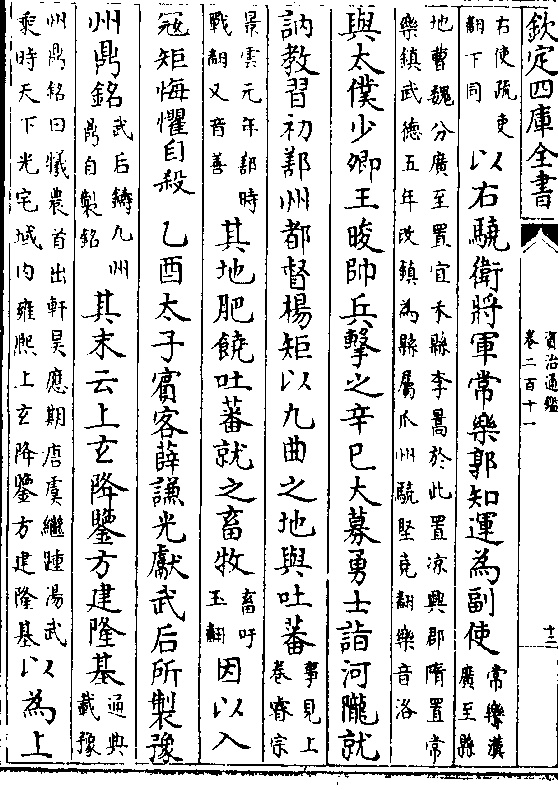 欽定四庫全書
資治通鑑
卷二百十一
十三
右使疏吏
翻下同
以右驍衛將軍常樂郭知運為副使
常樂漢
廣至縣
地曹魏分廣至置宜禾縣李暠於此置凉興郡隋置常
樂鎮武德五年改鎮為縣屬瓜州驍堅堯翻樂音洛
與太僕少卿王晙帥兵擊之辛巳大募勇士詣河隴就
訥教習初鄯州都督楊矩以九曲之地與吐蕃
事見上
卷睿宗
景雲元年鄯時
戰翻又音善
其地肥饒吐蕃就之畜牧
畜吁
玉翻
因以入
冦矩悔懼自殺 乙酉太子賓客薛謙光獻武后所製豫
州鼎銘
武后鑄九州
鼎自製銘
其末云上玄降鑒方建隆基
通典
載豫
州鼎銘曰犧農首出軒昊應期唐虞繼踵湯武
乘時天下光宅域内雍熙上玄降鑒方建隆基
以為上